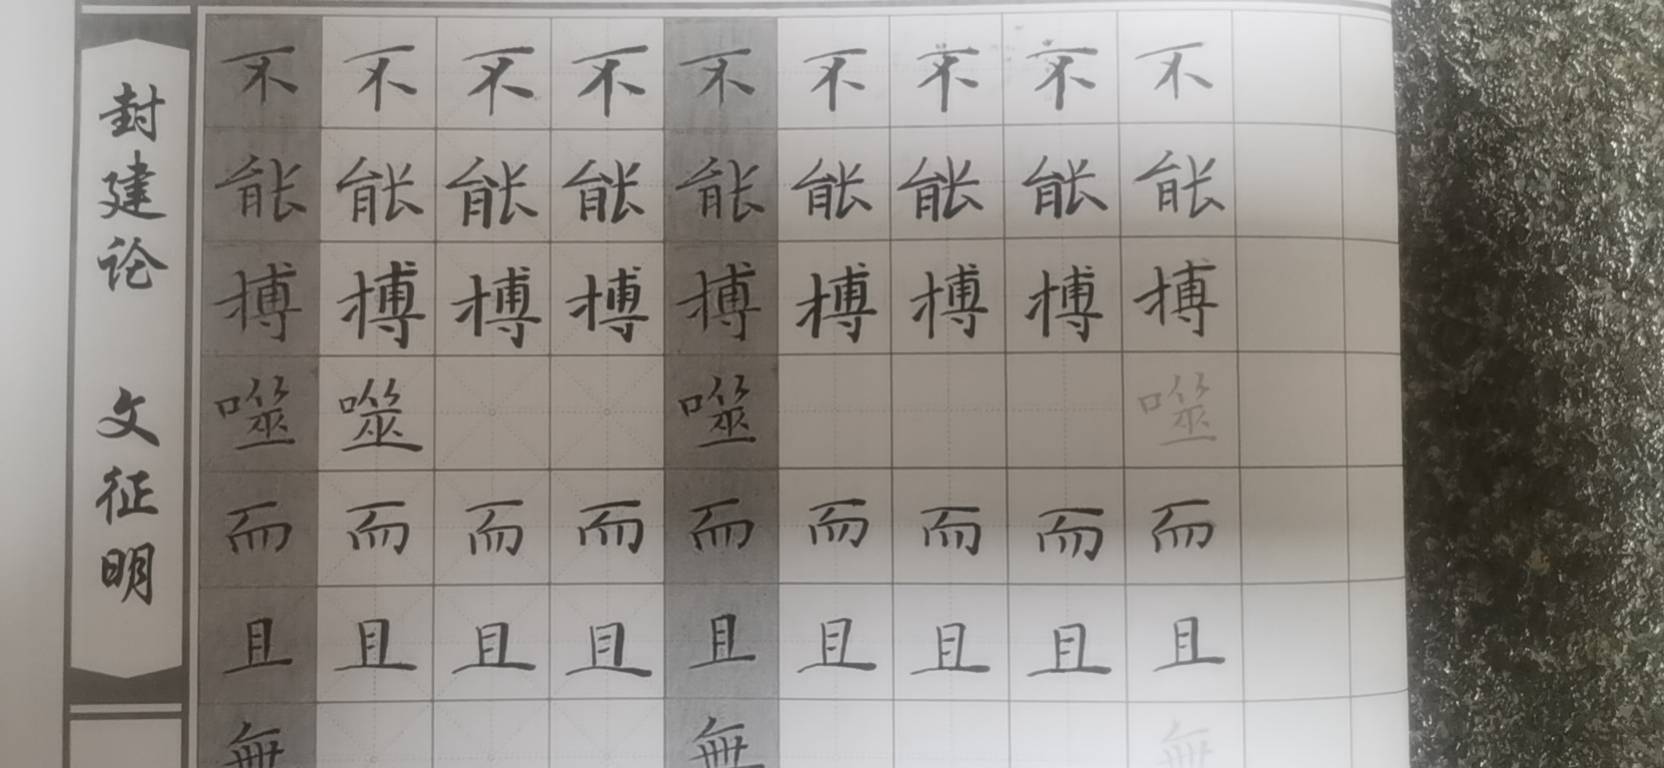 封建论 文征明
不不不不不不不不不
能能能能能能能能能
搏搏搏搏搏搏搏搏搏
噬噬噬噬
而而而而而而而而而
且且且且且且且且且
無無無